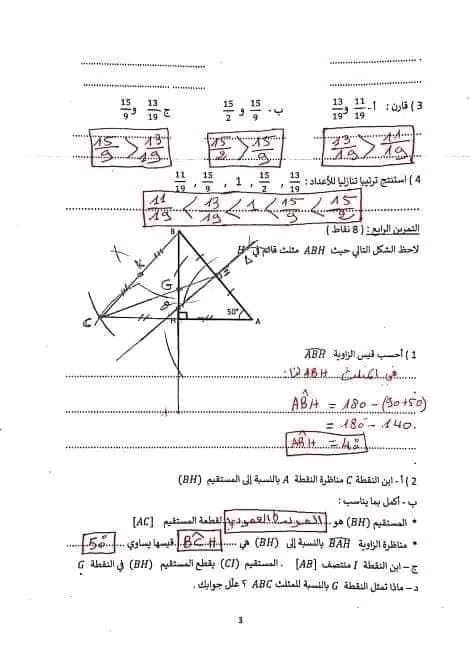 3 ) قارن : أ - 11/19 و 13/19 ب - 15/9 و 15/2 ج 13/19 و 15/9
13/19 > 11/19 15/2 > 15/9 15/9 > 13/19
4 ) استنتج ترتيبا تنازليا للأعداد : 13/19 , 15/2 , 1 , 15/9 , 11/19
11/19 < 13/19 < 1 < 15/9 < 15/2
التمرين الرابع : ( 8 نقاط )
لاحظ الشكل التالي حيث ABH مثلث قائم في H
B
K
G
I
Δ
C H 50° A
1 ) أحسب قيس الزاوية ABH
في المثلث ABH لنا:
ABH = 180 - (90+50)
= 180 - 140.
ABH = 40
2 ) أ - ابن النقطة C مناظرة النقطة A بالنسبة إلى المستقيم (BH)
ب - أكمل بما يناسب :
* المستقيم (BH) هو الموسط العمودي لقطعة المستقيم [AC]
* مناظرة الزاوية BAH بالنسبة إلى (BH) هي BCH قيسها يساوي 50°
ج - ابن النقطة I منتصف [AB] . المستقيم (CI) يقطع المستقيم (BH) في النقطة G
د - ماذا تمثل النقطة G بالنسبة للمثلث ABC ؟ علّل جوابك .
3